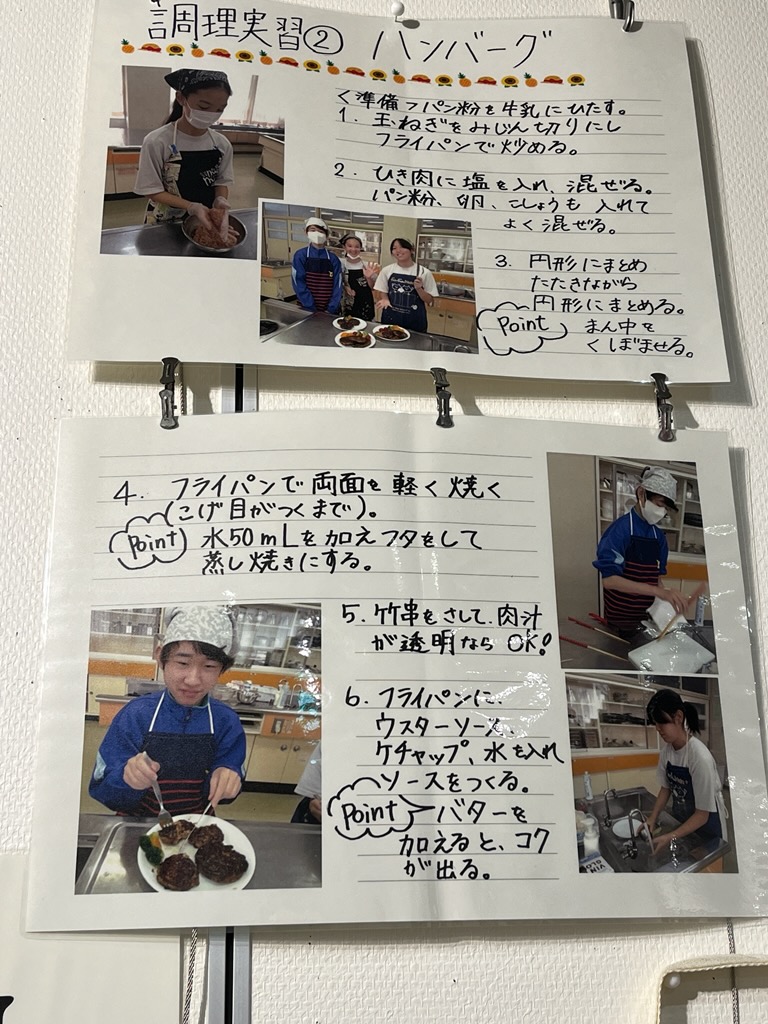 調理実習② ハンバーグ
<準備>パン粉を牛乳にひたす。
1. 玉ねぎをみじん切りにし
フライパンで炒める。
2. ひき肉に塩を入れ、混ぜる。
パン粉、卵、こしょうも入れて
よく混ぜる。
3. 円形にまとめ
たたきながら
円形にまとめる。
Point まん中を
くぼませる。
4. フライパンで両面を軽く焼く
(こげ目がつくまで)。
Point 水50mLを加えフタをして
蒸し焼きにする。
5. 竹串をさして、肉汁
が透明なら OK!
6. フライパンに、
ウスターソース、
ケチャップ、水を入れ
ソースをつくる。
Point バターを
加えると、コク
が出る。